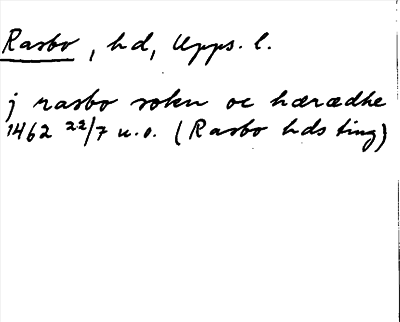 Rasbo, hd, Upps. l.
j rasbo sokn oc hærædhe
1462 22/7 u.o. (Rasbo hds ting)